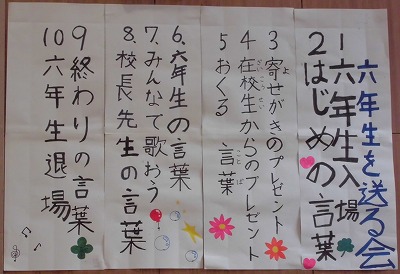 六年生を送る会
1 六年生入場
2 はじめの言葉
3 寄せがきのプレゼント
4 在校生からのプレゼント
5 おくる言葉
6. 六年生の言葉
7. みんなで歌おう
8. 校長先生の言葉
9 終わりの言葉
10 六年生退場